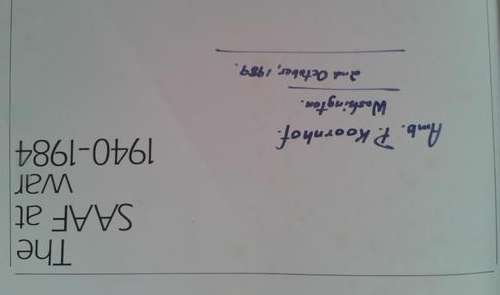 The
SAAF at
war
1940-1984
Amb. P. Koornhof.
Washington.
2nd October, 1989.